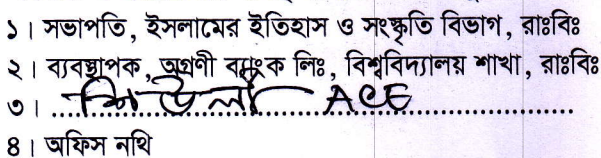 ১। সভাপতি, ইসলামের ইতিহাস ও সংস্কৃতি বিভাগ, রাঃবিঃ
২। ব্যবস্থাপক, অগ্রণী ব্যাংক লিঃ, বিশ্ববিদ্যালয় শাখা, রাঃবিঃ
৩। শিউলী ACE
৪। অফিস নথি